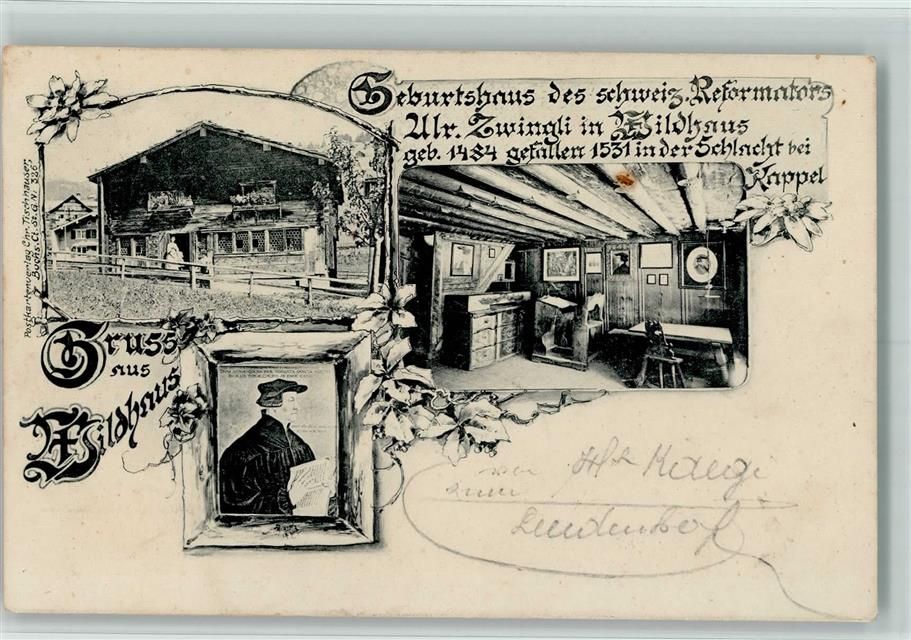 Geburtshaus des schweiz. Reformators
Ulr. Zwingli in Wildhaus
geb. 1484 gefallen 1531 in der Schlacht bei
Kappel
Postkartenverlag Chr. Tischhauser,
Buchs. Ct. St. G. N: 326
Gruss
aus
Wildhaus
von
zum